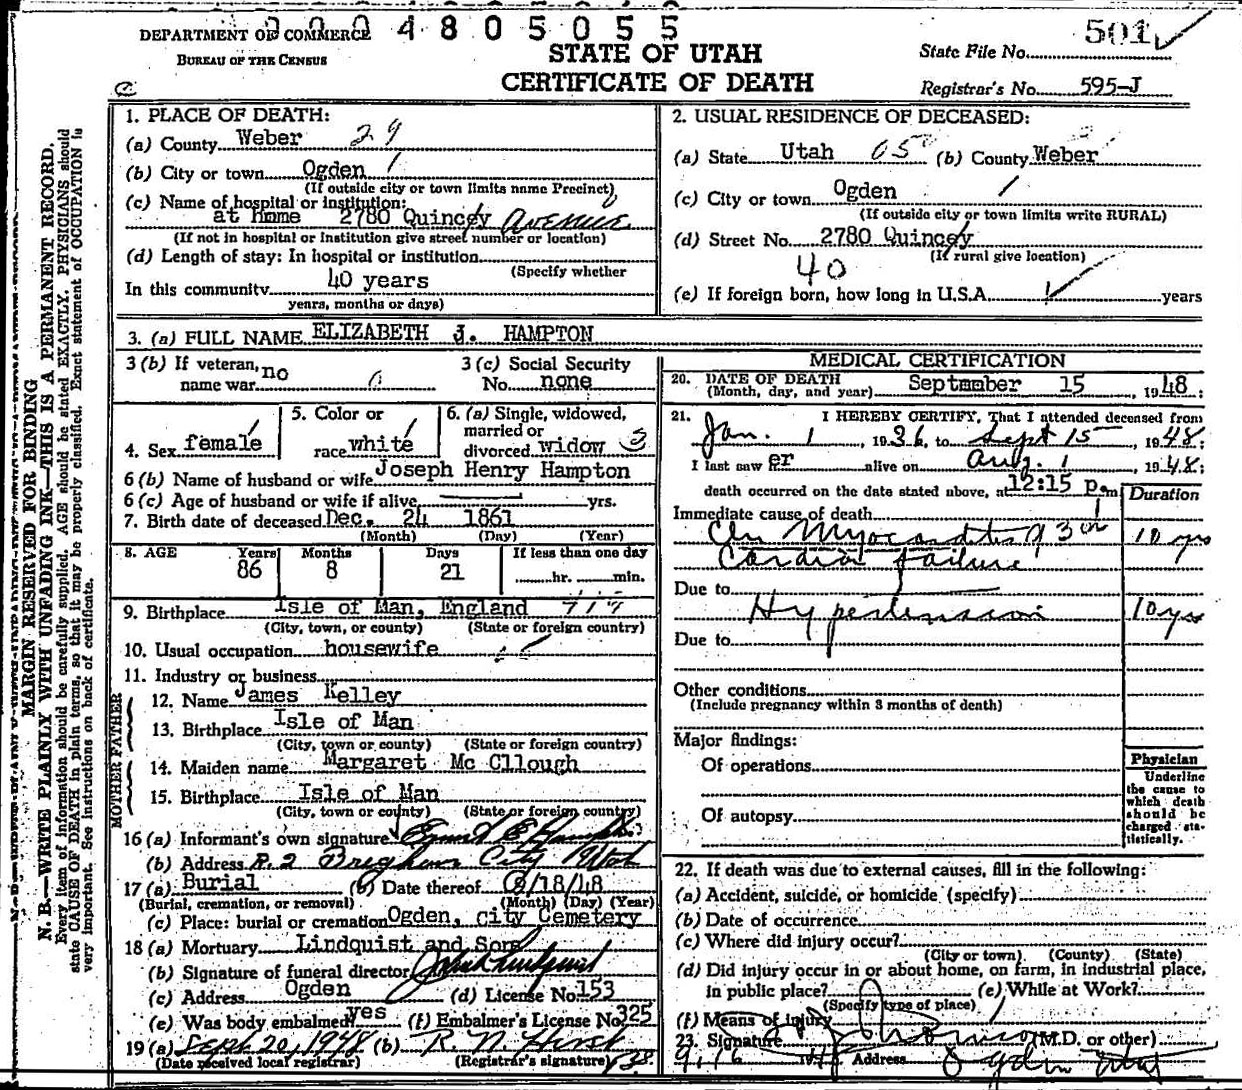 0004805055
DEPARTMENT OF COMMERCE
BUREAU OF THE CENSUS
STATE OF UTAH
CERTIFICATE OF DEATH
State File No. 501
Registrar's No. 595-J
N. B.—WRITE PLAINLY WITH UNFADING INK—THIS IS A PERMANENT RECORD.
MARGIN RESERVED FOR BINDING
Every item of information should be carefully supplied. AGE should be stated EXACTLY. PHYSICIANS should
state CAUSE OF DEATH in plain terms, so that it may be properly classified. Exact statement of OCCUPATION is
very important. See instructions on back of certificate.
1. PLACE OF DEATH:
(a) County Weber 29
(b) City or town Ogden
(If outside city or town limits name Precinct)
(c) Name of hospital or institution:
at Home 2780 Quincey Avenue
(If not in hospital or institution give street number or location)
(d) Length of stay: In hospital or institution
(Specify whether
In this community 40 years
years, months or days)
2. USUAL RESIDENCE OF DECEASED:
(a) State Utah 05 (b) County Weber
(c) City or town Ogden
(If outside city or town limits write RURAL)
(d) Street No. 2780 Quincey
(If rural give location)
40
(e) If foreign born, how long in U.S.A. years
3. (a) FULL NAME ELIZABETH J. HAMPTON
3 (b) If veteran, name war no
3 (c) Social Security No. none
4. Sex female
5. Color or race white
6. (a) Single, widowed, married or divorced widow 3
6 (b) Name of husband or wife Joseph Henry Hampton
6 (c) Age of husband or wife if alive yrs.
7. Birth date of deceased Dec. 24 1861
(Month) (Day) (Year)
8. AGE Years Months Days If less than one day
86 8 21 hr. min.
9. Birthplace Isle of Man, England
(City, town, or county) (State or foreign country)
10. Usual occupation housewife
11. Industry or business
FATHER
12. Name James Kelley
13. Birthplace Isle of Man
(City, town or county) (State or foreign country)
MOTHER
14. Maiden name Margaret Mc Cllough
15. Birthplace Isle of Man
(City, town or county) (State or foreign country)
16 (a) Informant's own signature
(b) Address R. 2 Brigham City Utah
17 (a) Burial (b) Date thereof 9/18/48
(Burial, cremation, or removal) (Month) (Day) (Year)
(c) Place: burial or cremation Ogden, City Cemetery
18 (a) Mortuary Lindquist and Sons
(b) Signature of funeral director
(c) Address Ogden (d) License No. 153
(e) Was body embalmed? yes (f) Embalmer's License No. 325
19 (a) Sept 20, 1948 (b) R. N. Hirst
(Date received local registrar) (Registrar's signature)
MEDICAL CERTIFICATION
20. DATE OF DEATH
(Month, day, and year) September 15 1948:
21. I HEREBY CERTIFY, That I attended deceased from
Jan. 1, 1936, to Sept 15, 1948:
I last saw er alive on Aug. 1, 1948:
death occurred on the date stated above, at 12:15 p.m
Duration
Immediate cause of death
Chr Myocarditis 10 yrs
Cardiac failure
Due to
Hypertension 10 yrs
Due to
Other conditions
(Include pregnancy within 3 months of death)
Major findings:
Of operations
Of autopsy
Physician
Underline
the cause to
which death
should be
charged sta-
tistically.
22. If death was due to external causes, fill in the following:
(a) Accident, suicide, or homicide (specify)
(b) Date of occurrence
(c) Where did injury occur?
(City or town) (County) (State)
(d) Did injury occur in or about home, on farm, in industrial place,
in public place? (e) While at Work?
(Specify type of place)
(f) Means of injury
23. Signature (M.D. or other)
9.16 1948 Address Ogden Utah